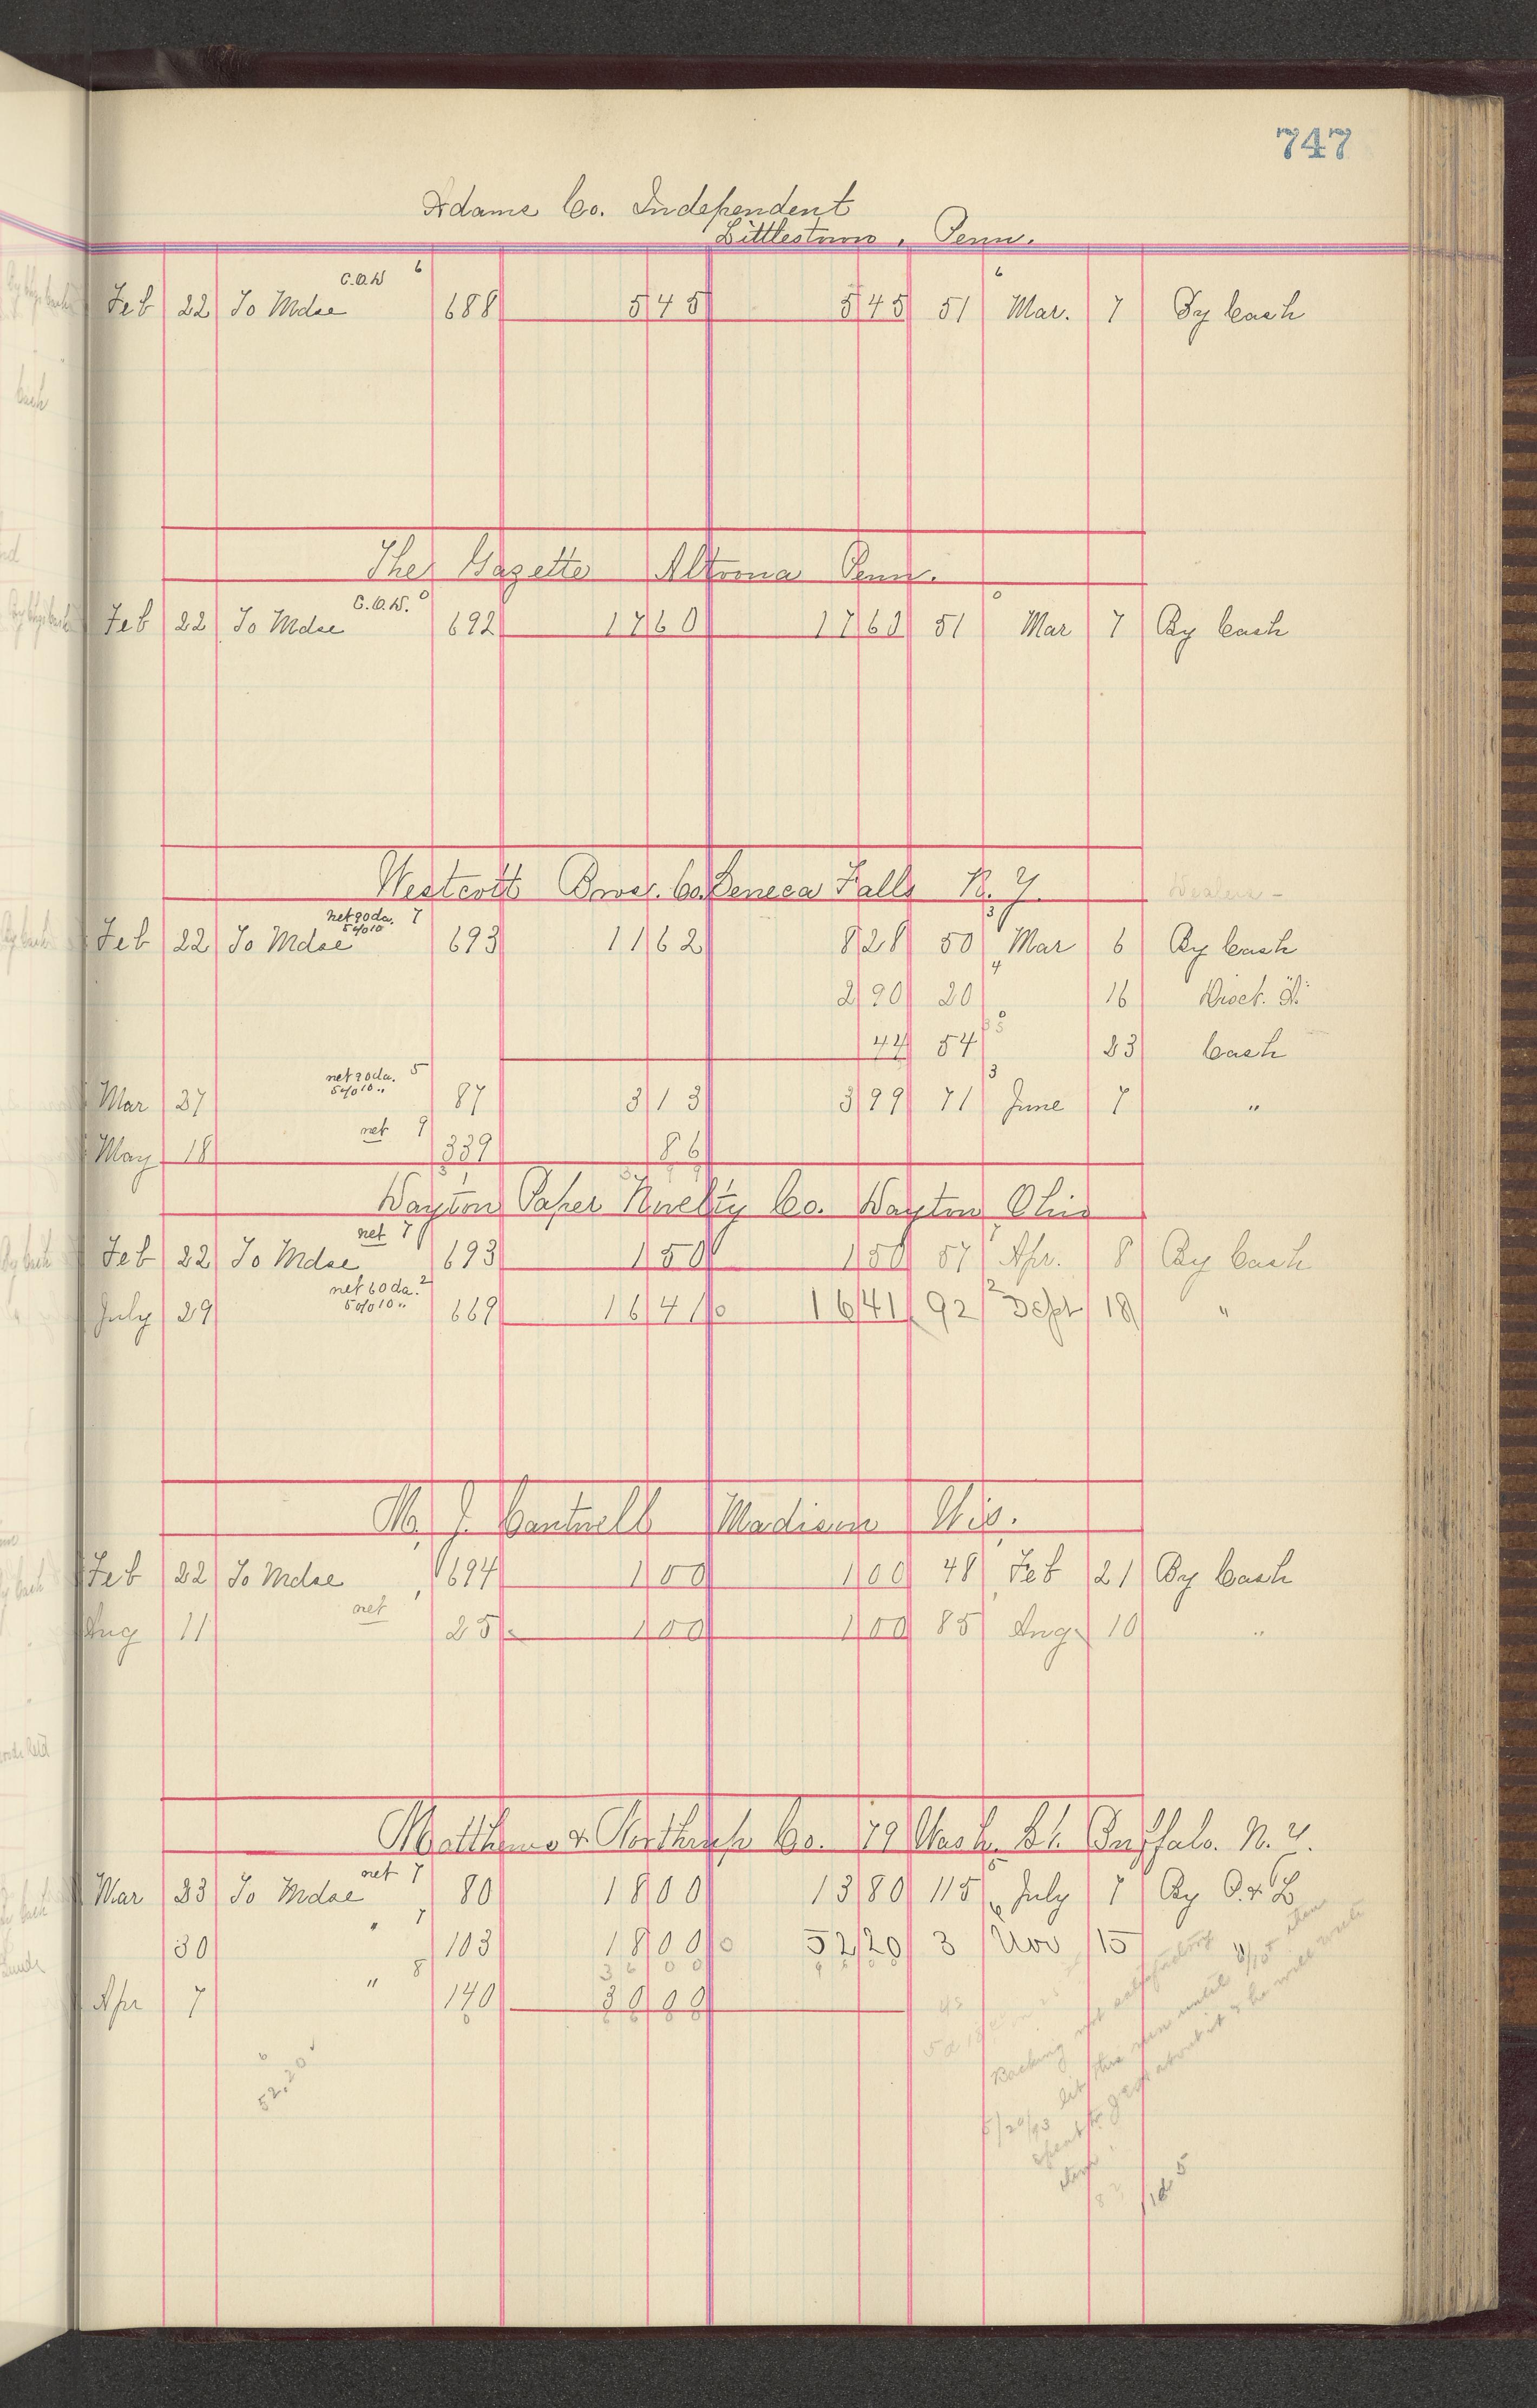 747
Adams Co. Independent
Littlestown, Penn.
C.O.D 6 6
Feb 22 To Mdse 688 5 45 5 45 51 Mar. 7 By Cash
The Gazette Altoona Penn.
C.O.D. 0 0
Feb 22 To Mdse 692 17 60 17 60 51 Mar 7 By Cash
Westcott Bros. Co. Seneca Falls N. Y. Dealers -
net 90 da. 7 3
5% 10
Feb 22 To Mdse 693 11 62 8 28 50 Mar 6 By Cash
4
2 90 20 16 Disct.
44 54 23 Cash
net 90 da. 5 3
5% 10 "
Mar 27 87 3 13 3 99 71 June 7 "
net 9
May 18 339 86
Dayton Paper Novelty Co. Dayton Ohio
net 7
Feb 22 To Mdse 693 1 50 1 50 57 Apr. 8 By Cash
net 60 da. 2 2
5% 10 "
July 29 669 16 41 16 41 92 Sept 18 "
M. J. Cantwell Madison Wis.
Feb 22 To Mdse 694 1 00 1 00 48 Feb 21 By Cash
net
Aug 11 25 1 00 1 00 85 Aug 10 "
Matthews & Northrup Co. 79 Wash. St. Buffalo. N. Y.
net 7
Mar 23 To Mdse 80 18 00 13 80 115 July 7 By O. & L
" 7 6
30 103 18 00 52 20 3 Nov 15
36 00
" 8
Apr 7 140 30 00
66 00
52.20
Backing not satisfactory
5/20/93 let this run until
about it & he will write